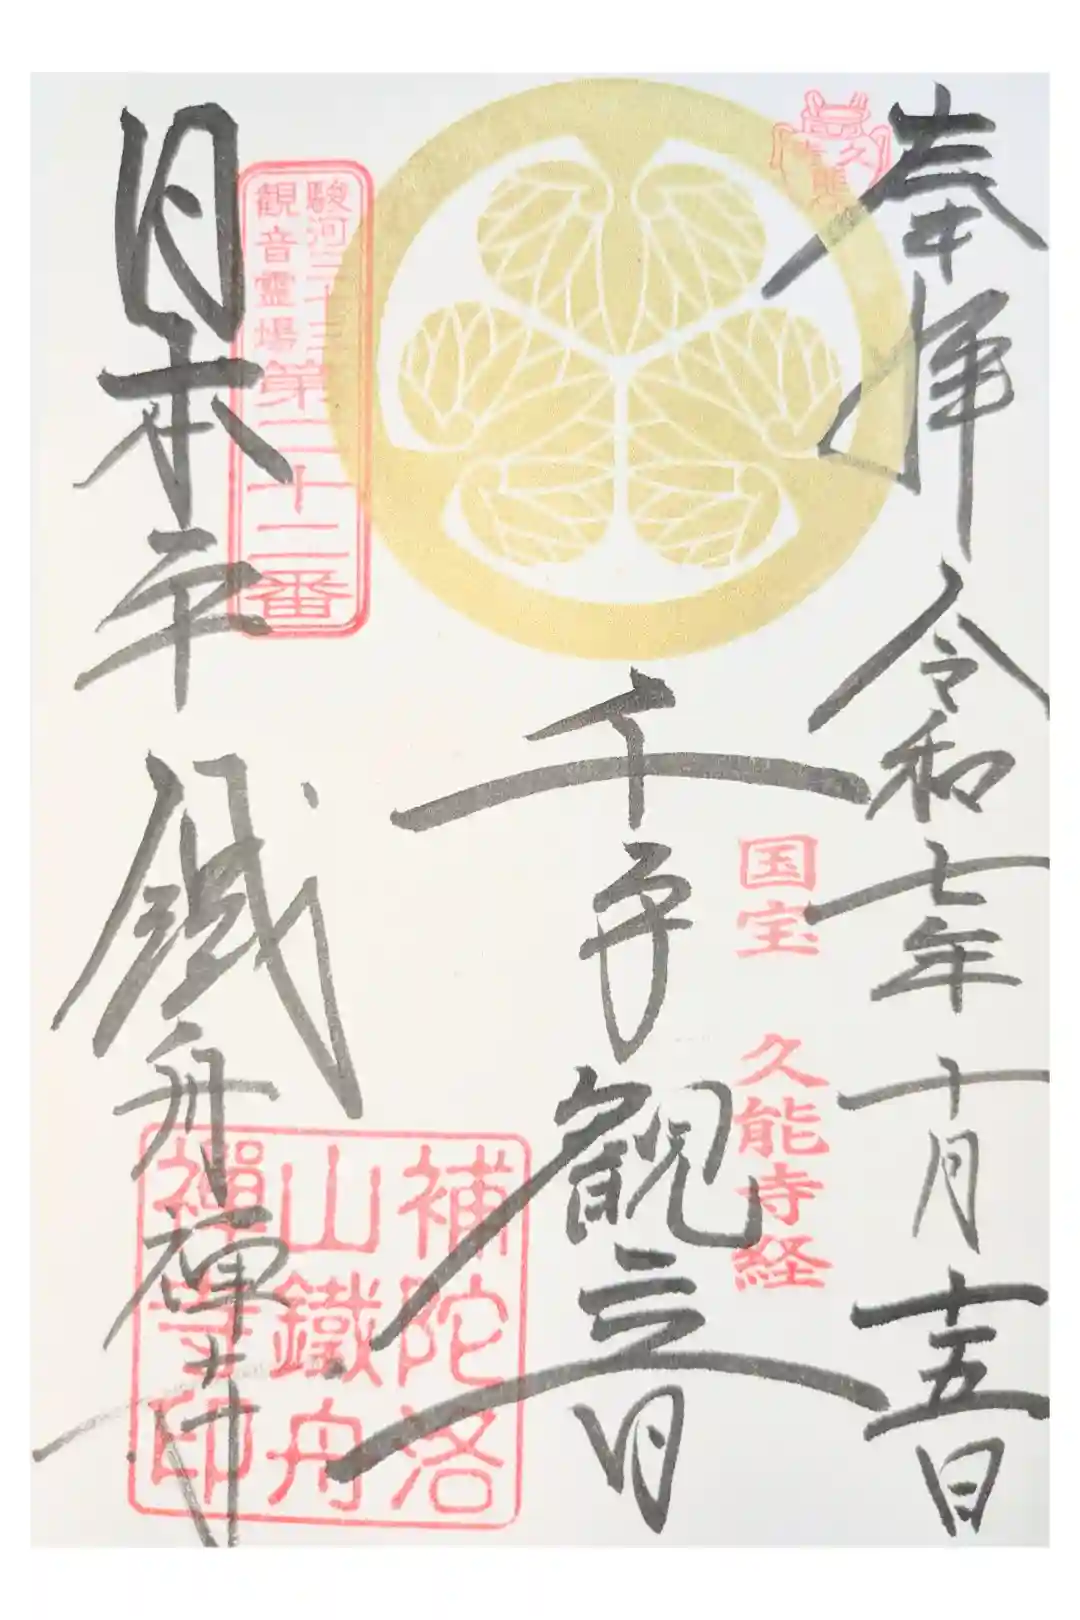 奉拝
令和七年十月十五日
国宝 久能寺経
千手観音
駿河三十三
観音霊場第二十二番
日本平
鐵舟禅寺
補陀洛
山鐵舟
禅寺印